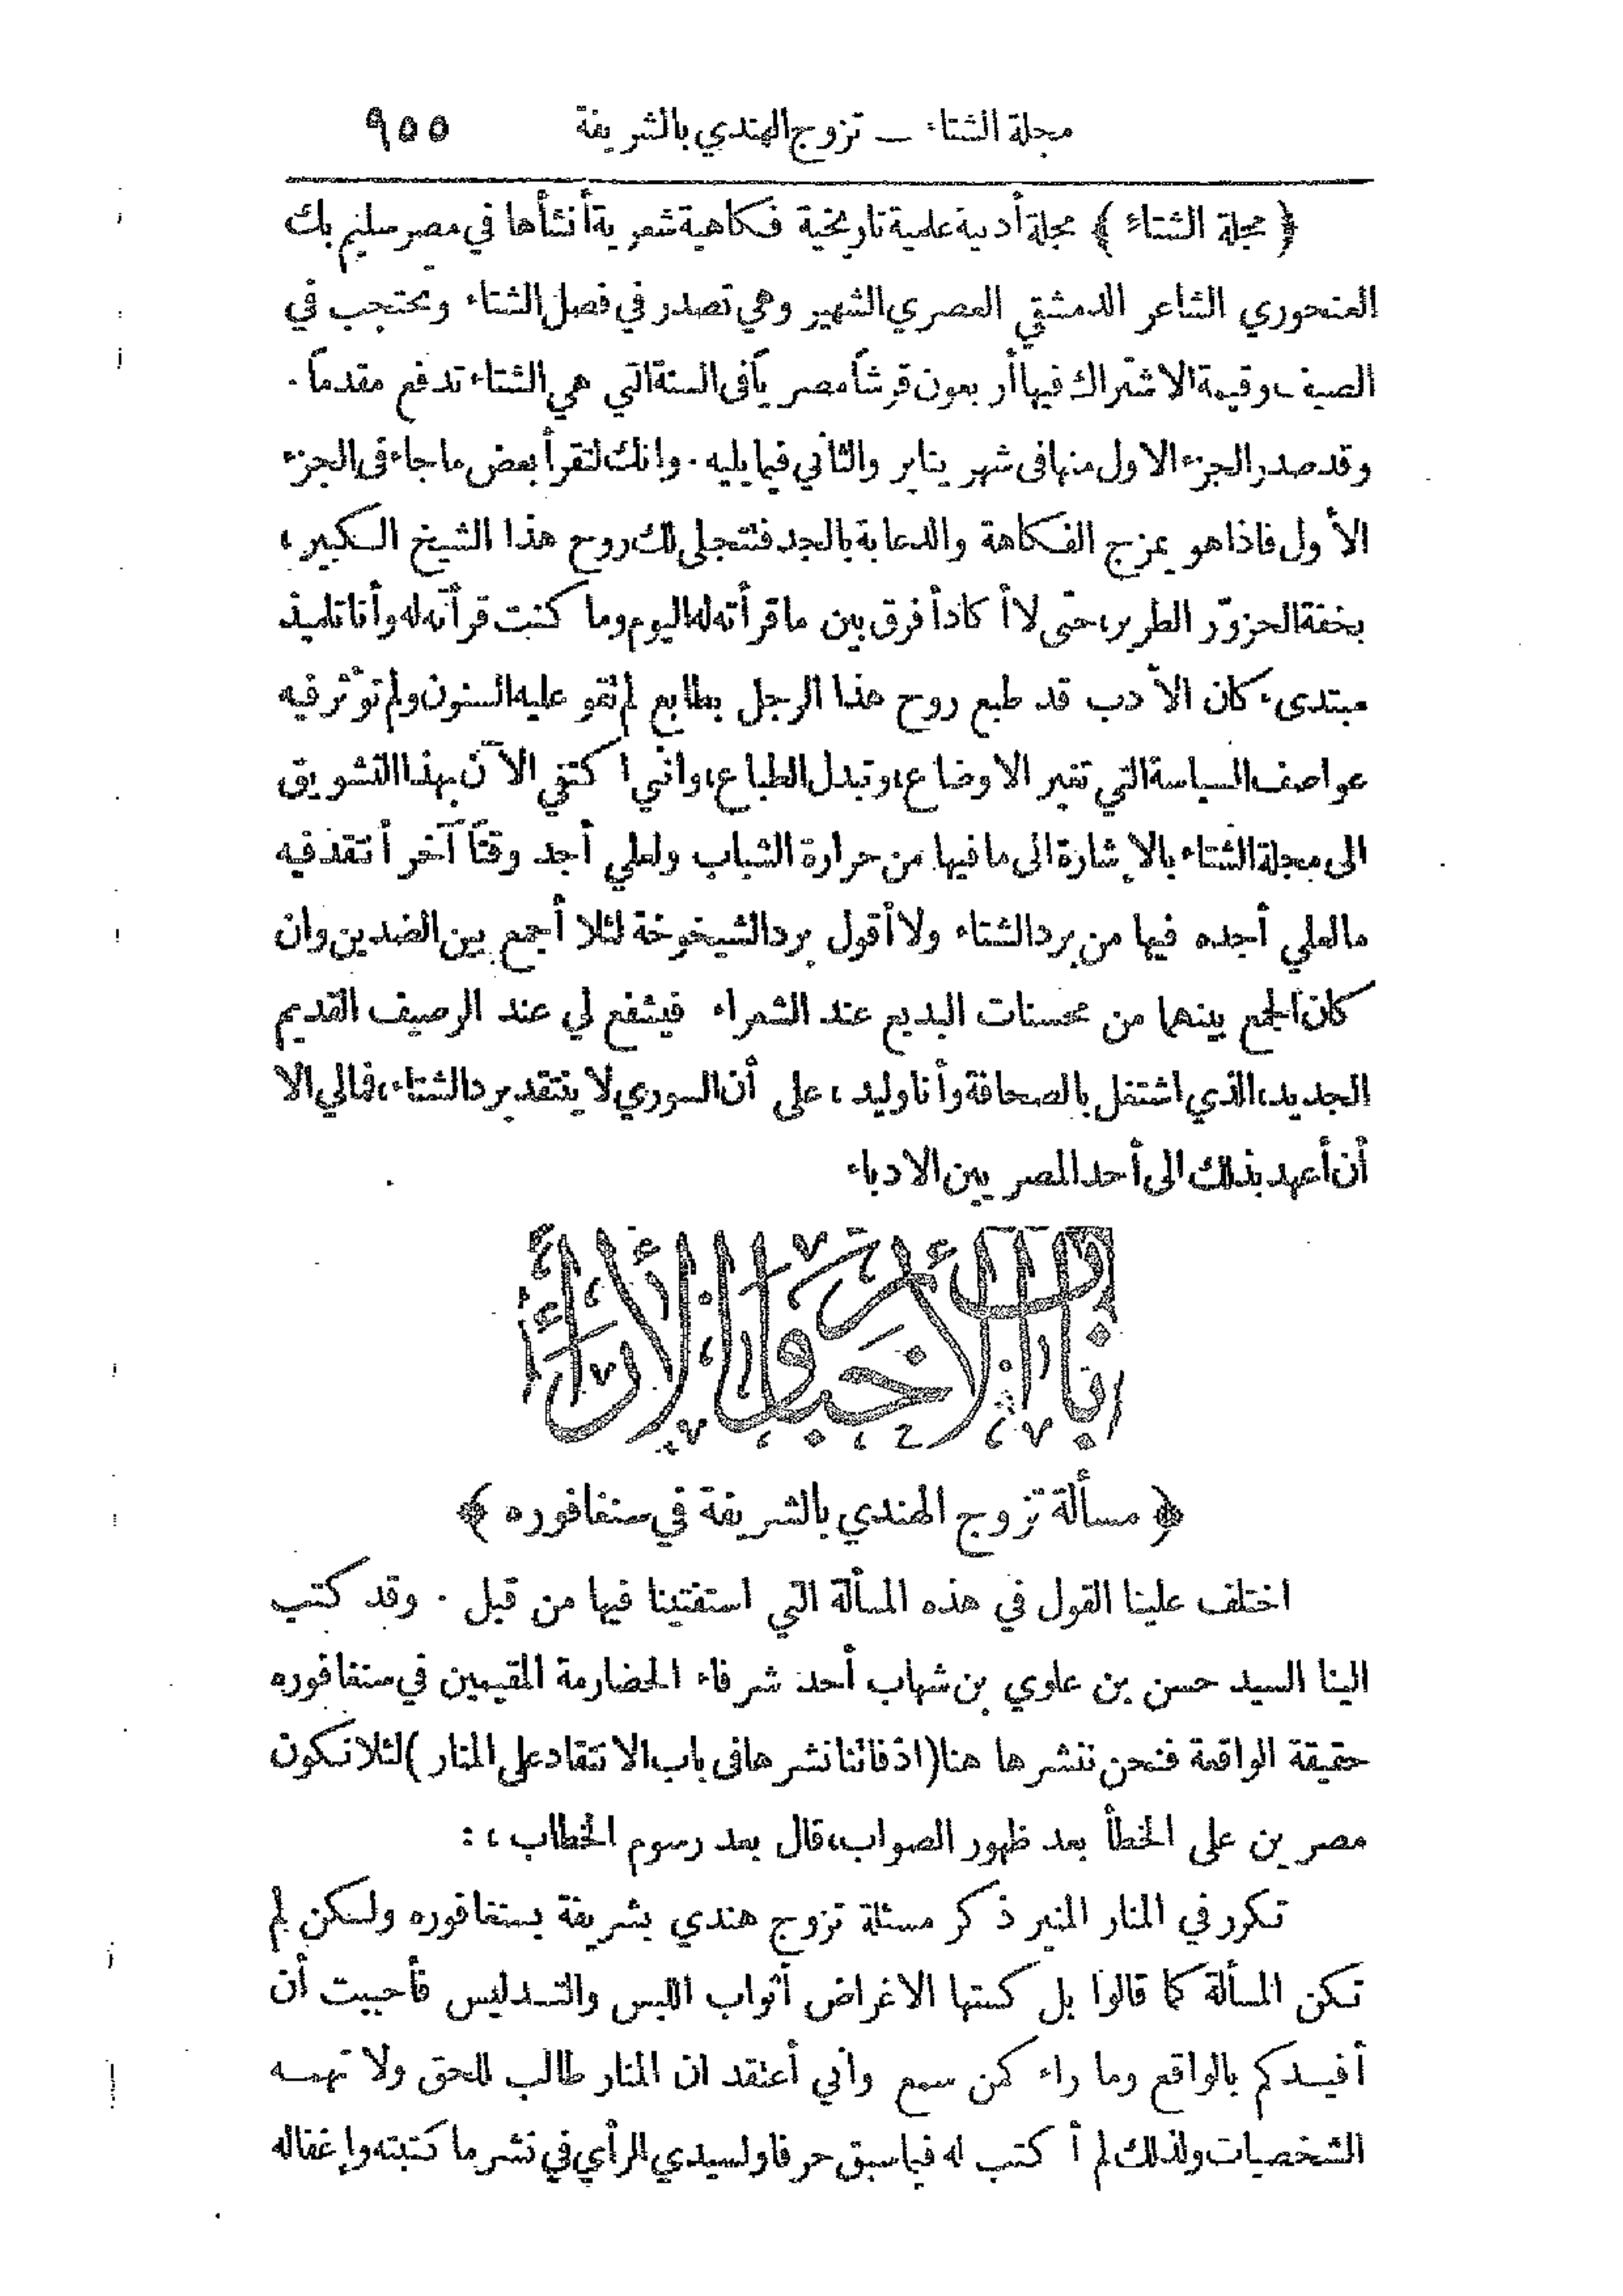 مجلة الشتاء — تزوج الهندي بالشريفة ٩٥٥
﴿ مجلة الشتاء ﴾ مجلة أدبية علمية تاريخية فكاهية شعرية أنشأها في مصر سليم بك
العنحوري الشاعر الدمشقي العصري الشهير وهي تصدر في فصل الشتاء وتحتجب في
الصيف وقيمة الاشتراك فيها أربعون قرشاً مصرياً في السنة التي هي الشتاء تدفع مقدماً .
وقد صدر الجزء الاول منها في شهر يناير والثاني فيما يليه . وانك لتقرأ بعض ما جاء في الجزء
الأول فاذا هو يمزج الفكاهة والدعابة بالجد فتتجلى لك روح هذا الشيخ الكبير ،
بخفة الحزوّر الطرير، حتى لا أكاد أفرق بين ما قرأته له اليوم وما كنت قرأته له وأنا تلميذ
مبتدىء كان الأدب قد طبع روح هذا الرجل بطابع لم تقو عليه السنون ولم تؤثر فيه
عواصف السياسة التي تغير الاوضاع، وتبدل الطباع، واني اكتفي الآن بهذا التشويق
الى مجلة الشتاء بالإشارة الى ما فيها من حرارة الشباب ولعلي أجد وقتاً آخر أنتقد فيه
ما لعلي أجده فيها من برد الشتاء ولا أقول برد الشيخوخة لئلا أجمع بين الضدين وان
كان الجمع بينهما من محسنات البديع عند الشعراء فيشفع لي عند الرصيف القديم
الجديد، الذي اشتغل بالصحافة وأنا وليد ، على أن السوري لا ينتقد برد الشتاء، فما لي الا
أن أعهد بذلك الى أحد المصريين الادباء
باب الأخبار والآراء
﴿ مسألة تزوج الهندي بالشريفة في سنغافوره ﴾
اختلف علينا القول في هذه المسألة التي استفتينا فيها من قبل . وقد كتب
الينا السيد حسن بن علوي بن شهاب أحد شرفاء الحضارمة المقيمين في سنغافوره
حقيقة الواقعة فنحن ننشرها هنا (اذ فاتنا نشرها في باب الانتقاد على المنار ) لئلا نكون
مصرين على الخطأ بعد ظهور الصواب، قال بعد رسوم الخطاب ، :
تكرر في المنار المنير ذكر مسئلة تزوج هندي بشريفة بسنغافوره ولكن لم
تكن المسألة كما قالوا بل كستها الاغراض أثواب اللبس والتدليس فأحببت أن
أفيدكم بالواقع وما راء كمن سمع واني أعتقد ان المنار طالب للحق ولا تهمه
الشخصيات ولذلك لم أكتب له فيما سبق حرفا ولسيدي الرأي في نشر ما كتبته وإغفاله